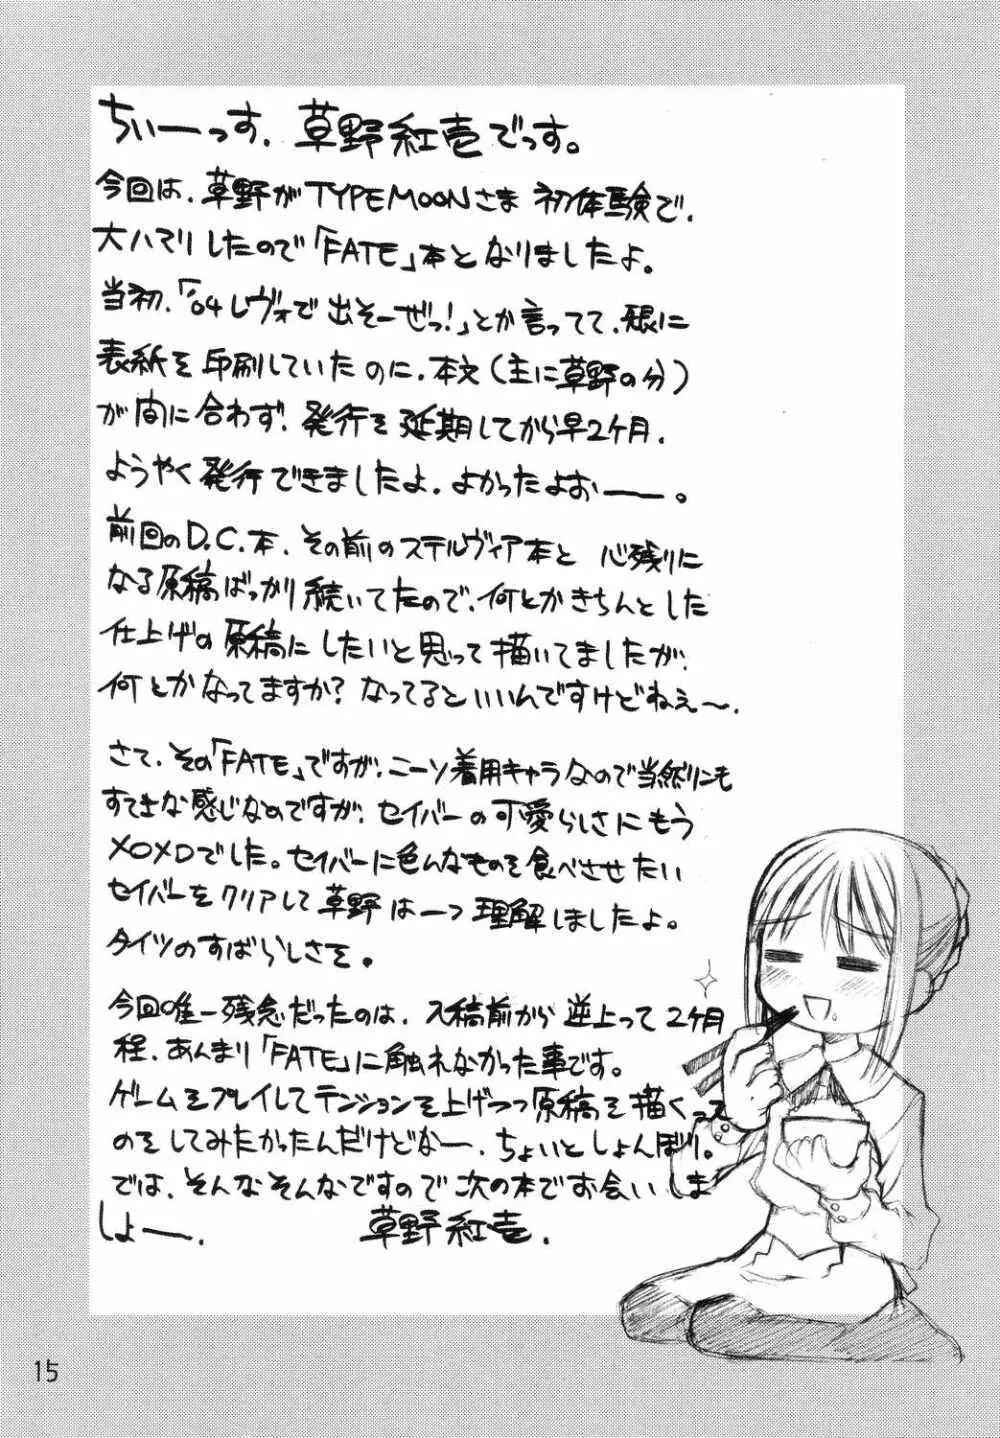 ちぃーっす、草野紅壱でっす。
今回は、草野がTYPEMOONさま 初体験で、
大ハマリしたので「FATE」本となりましたよ。
当初、「'04レヴォで出そーぜっ!」とか言ってて、現に
表紙を印刷していたのに、本文(主に草野の分)
が間に合わず、発行を延期してから早2ヶ月、
ようやく発行できましたよ、よかったよおー。
前回のD.C.本、その前のステルヴィア本と 心残りに
なる原稿ばっかり続いてたので、何とかきちんとした
仕上げの原稿にしたいと思って描いてましたが、
何とかなってますか?なってるといいんですけどねぇ~、
さて、その「FATE」ですが、ニーソ着用キャラなので当然凛も
すてきな感じなのですが、セイバーの可愛らしさにもう
XOXOでした。セイバーに色んなものを食べさせたい
セイバーをクリアして草野は一つ理解しましたよ。
タイツのすばらしさを。
今回唯一残念だったのは、入稿前から逆上って2ヶ月
程、あんまり「FATE」に触れなかった事です。
ゲームをプレイしてテンションを上げつつ原稿を描くって
のをしてみたかったんだけどなー、ちょいとしょんぼり。
では、そんなそんなですので次の本でお会いしま
しょー、 草野紅壱、
15